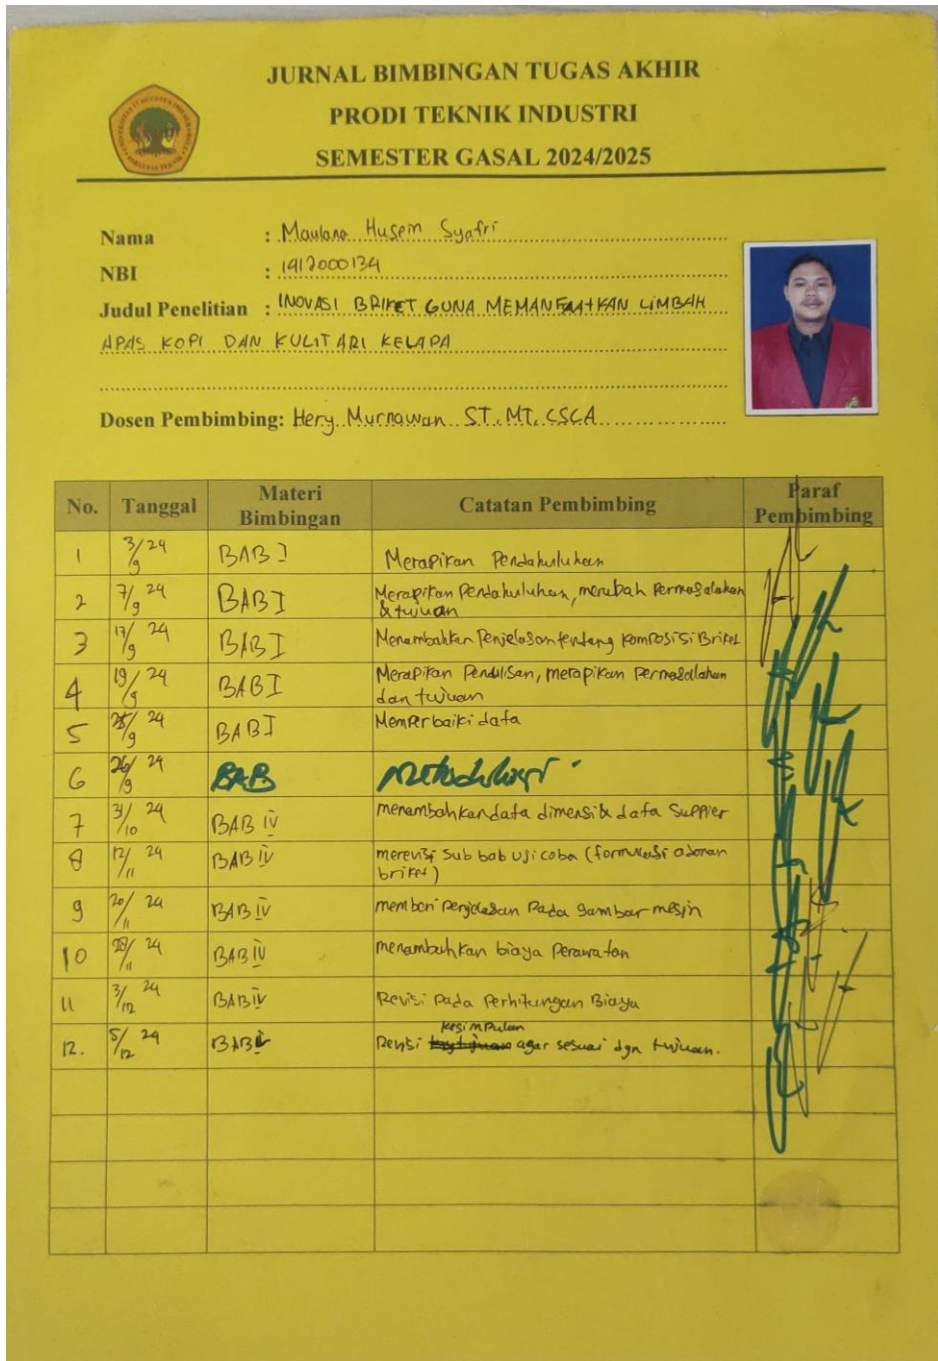 JURNAL BIMBINGAN TUGAS AKHIR
PRODI TEKNIK INDUSTRI
SEMESTER GASAL 2024/2025
Nama : Maulana Husein Syafri
NBI : 1412000134
Judul Penelitian : INOVASI BRIKET GUNA MEMANFAATKAN LIMBAH
APAS KOPI DAN KULIT ARI KELAPA
Dosen Pembimbing: Hery Murnawan ST, MT, CSCA
No. Tanggal Materi Bimbingan Catatan Pembimbing Paraf Pembimbing
1 3/9 24 BAB I Merapikan Pendahuluhan
2 7/9 24 BAB I Merapikan Pendahuluhan, merubah Permasalahan
& tujuan
3 17/9 24 BAB I Menambahkan Penjelasan tentang Komposisi Briket
4 19/9 24 BAB I Merapikan Penulisan, merapikan Permasalahan
dan tujuan
5 25/9 24 BAB I Memperbaiki data
6 26/9 24 BAB Metodologi
7 31/10 24 BAB IV menambahkan data dimensi & data Suppier
8 12/11 24 BAB IV merevisi Sub bab uji coba (formulasi adonan
briket)
9 20/11 24 BAB IV memberi Penjelasan Pada gambar mesin
10 28/11 24 BAB IV menambahkan biaya Perawatan
11 3/12 24 BAB IV Revisi Pada Perhitungan Biaya
12. 5/12 24 BAB Revisi kesimpulan agar sesuai dgn tujuan.